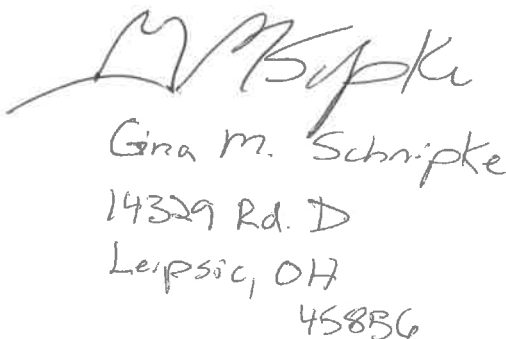 Gina M. Schnipke
14329 Rd. D
Leipsic, OH
45856